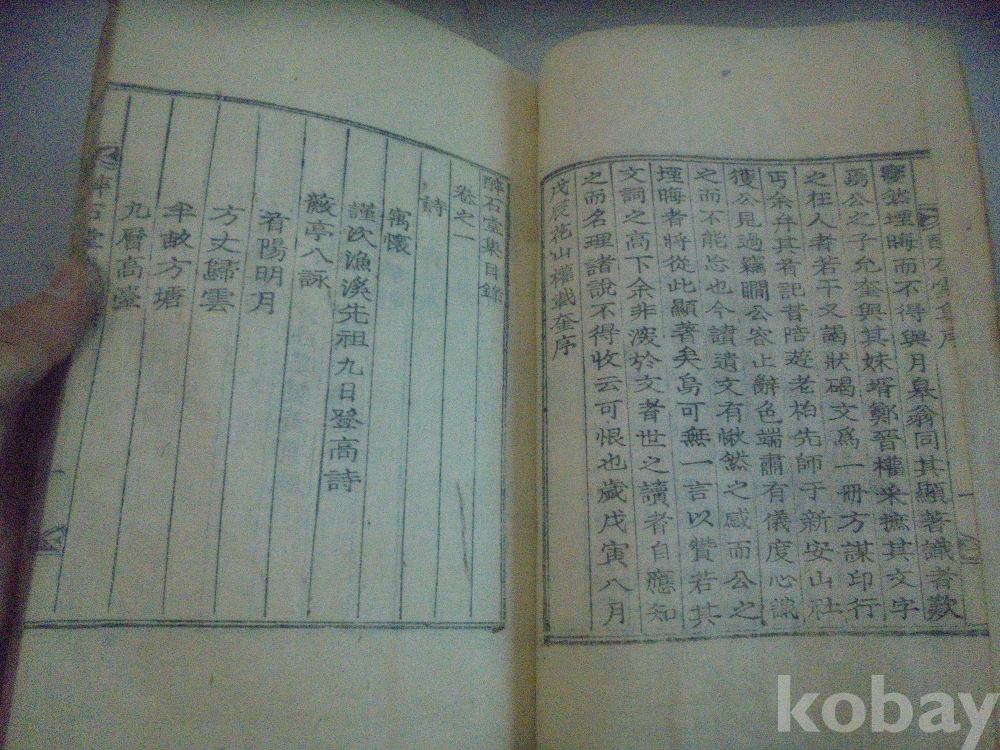 寥蔑堙晦而不得與月皐翁同其顯著識者歎
焉公之子允奎與其妹壻鄭晉權采摭其文字
之在人者若干又謁狀碣文爲一冊方謀印行
丐余弁其首記昔陪遊老柏先師于新安山社
獲公見過竊瞷公容止辭色端肅有儀度心識
之而不能忘也今讀遺文有愀然之感而公之
堙晦者將從此顯著矣烏可無一言以贊若其
文詞之高下余非深於文者世之讀者自應知
之而名理諸說不得收云可恨也歲戊寅八月
戊辰花山權載奎序
醉石堂集目錄
卷之一
詩
寓懷
謹次漁溪先祖九日登高詩
薇亭八詠
看陽明月
方丈歸雲
半畝方塘
九層高臺
醉石堂
kobay